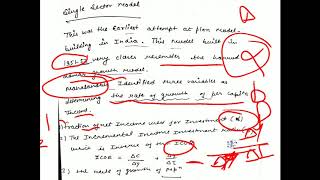 Single Sector Model
This was the Earliest attempt at plan model-
building in India. This model built in
1951-52 very closer resembles the harrod
domar growth model.
Mahalanobis Identified three variables as
determining the rate of growth of per capita
Income.
fraction of net Income uses for Investment (α)
2) The Incremental Income Investment
which is Inverse of the ICOR
ICOR =
2) The rate of growth of Popn